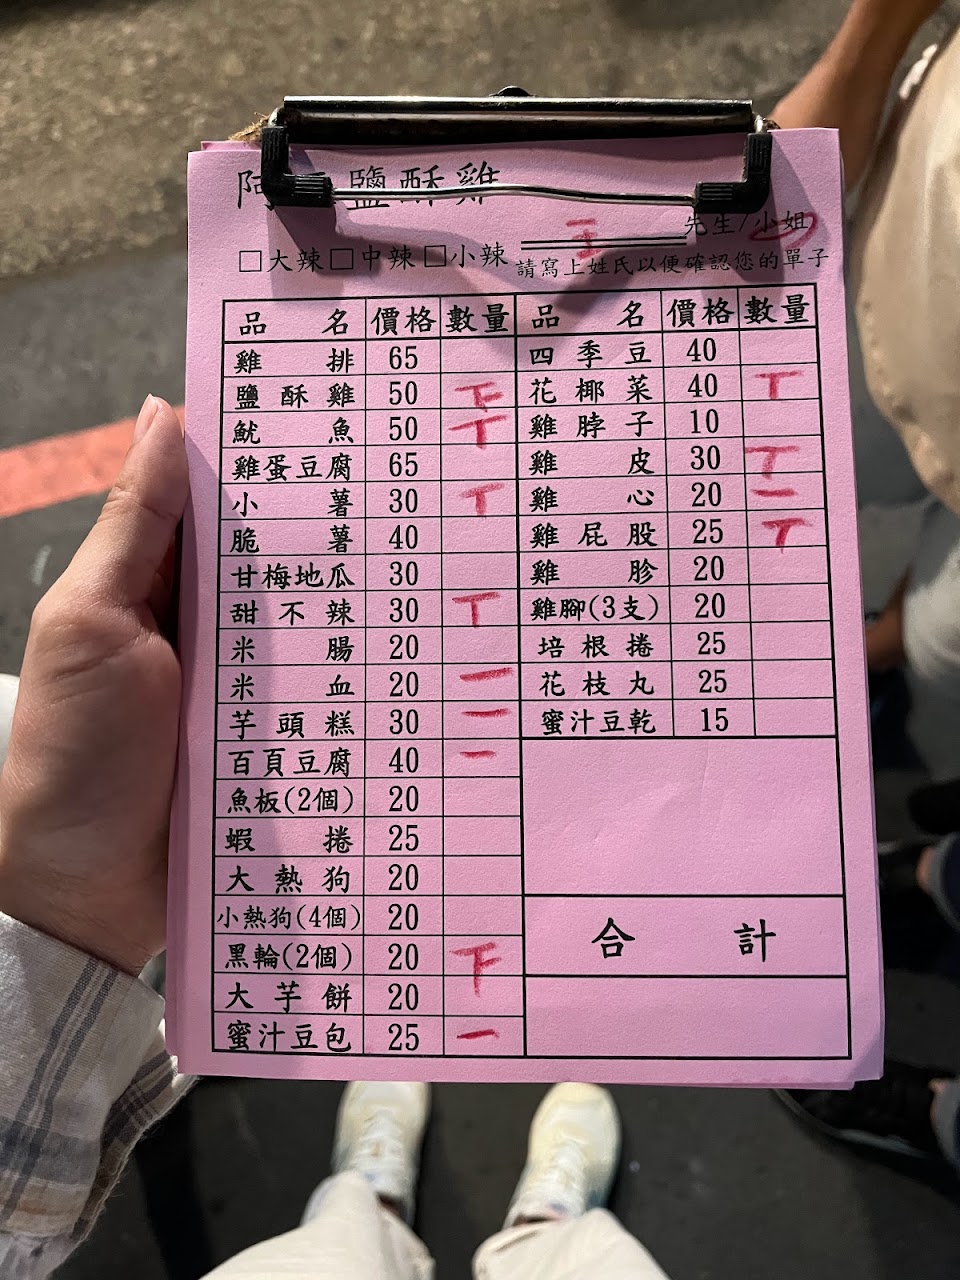 阿 鹽酥雞
王 先生/小姐
□大辣□中辣□小辣 請寫上姓氏以便確認您的單子
品名 價格 數量 品名 價格 數量
雞排 65 四季豆 40
鹽酥雞 50 下 花椰菜 40 丅
魷魚 50 丅 雞脖子 10
雞蛋豆腐 65 雞皮 30 丅
小薯 30 丅 雞心 20 一
脆薯 40 雞屁股 25 丅
甘梅地瓜 30 雞胗 20
甜不辣 30 丅 雞腳(3支) 20
米腸 20 培根捲 25
米血 20 一 花枝丸 25
芋頭糕 30 一 蜜汁豆乾 15
百頁豆腐 40 一
魚板(2個) 20
蝦捲 25
大熱狗 20
小熱狗(4個) 20
黑輪(2個) 20 下
大芋餅 20
蜜汁豆包 25 一
合計